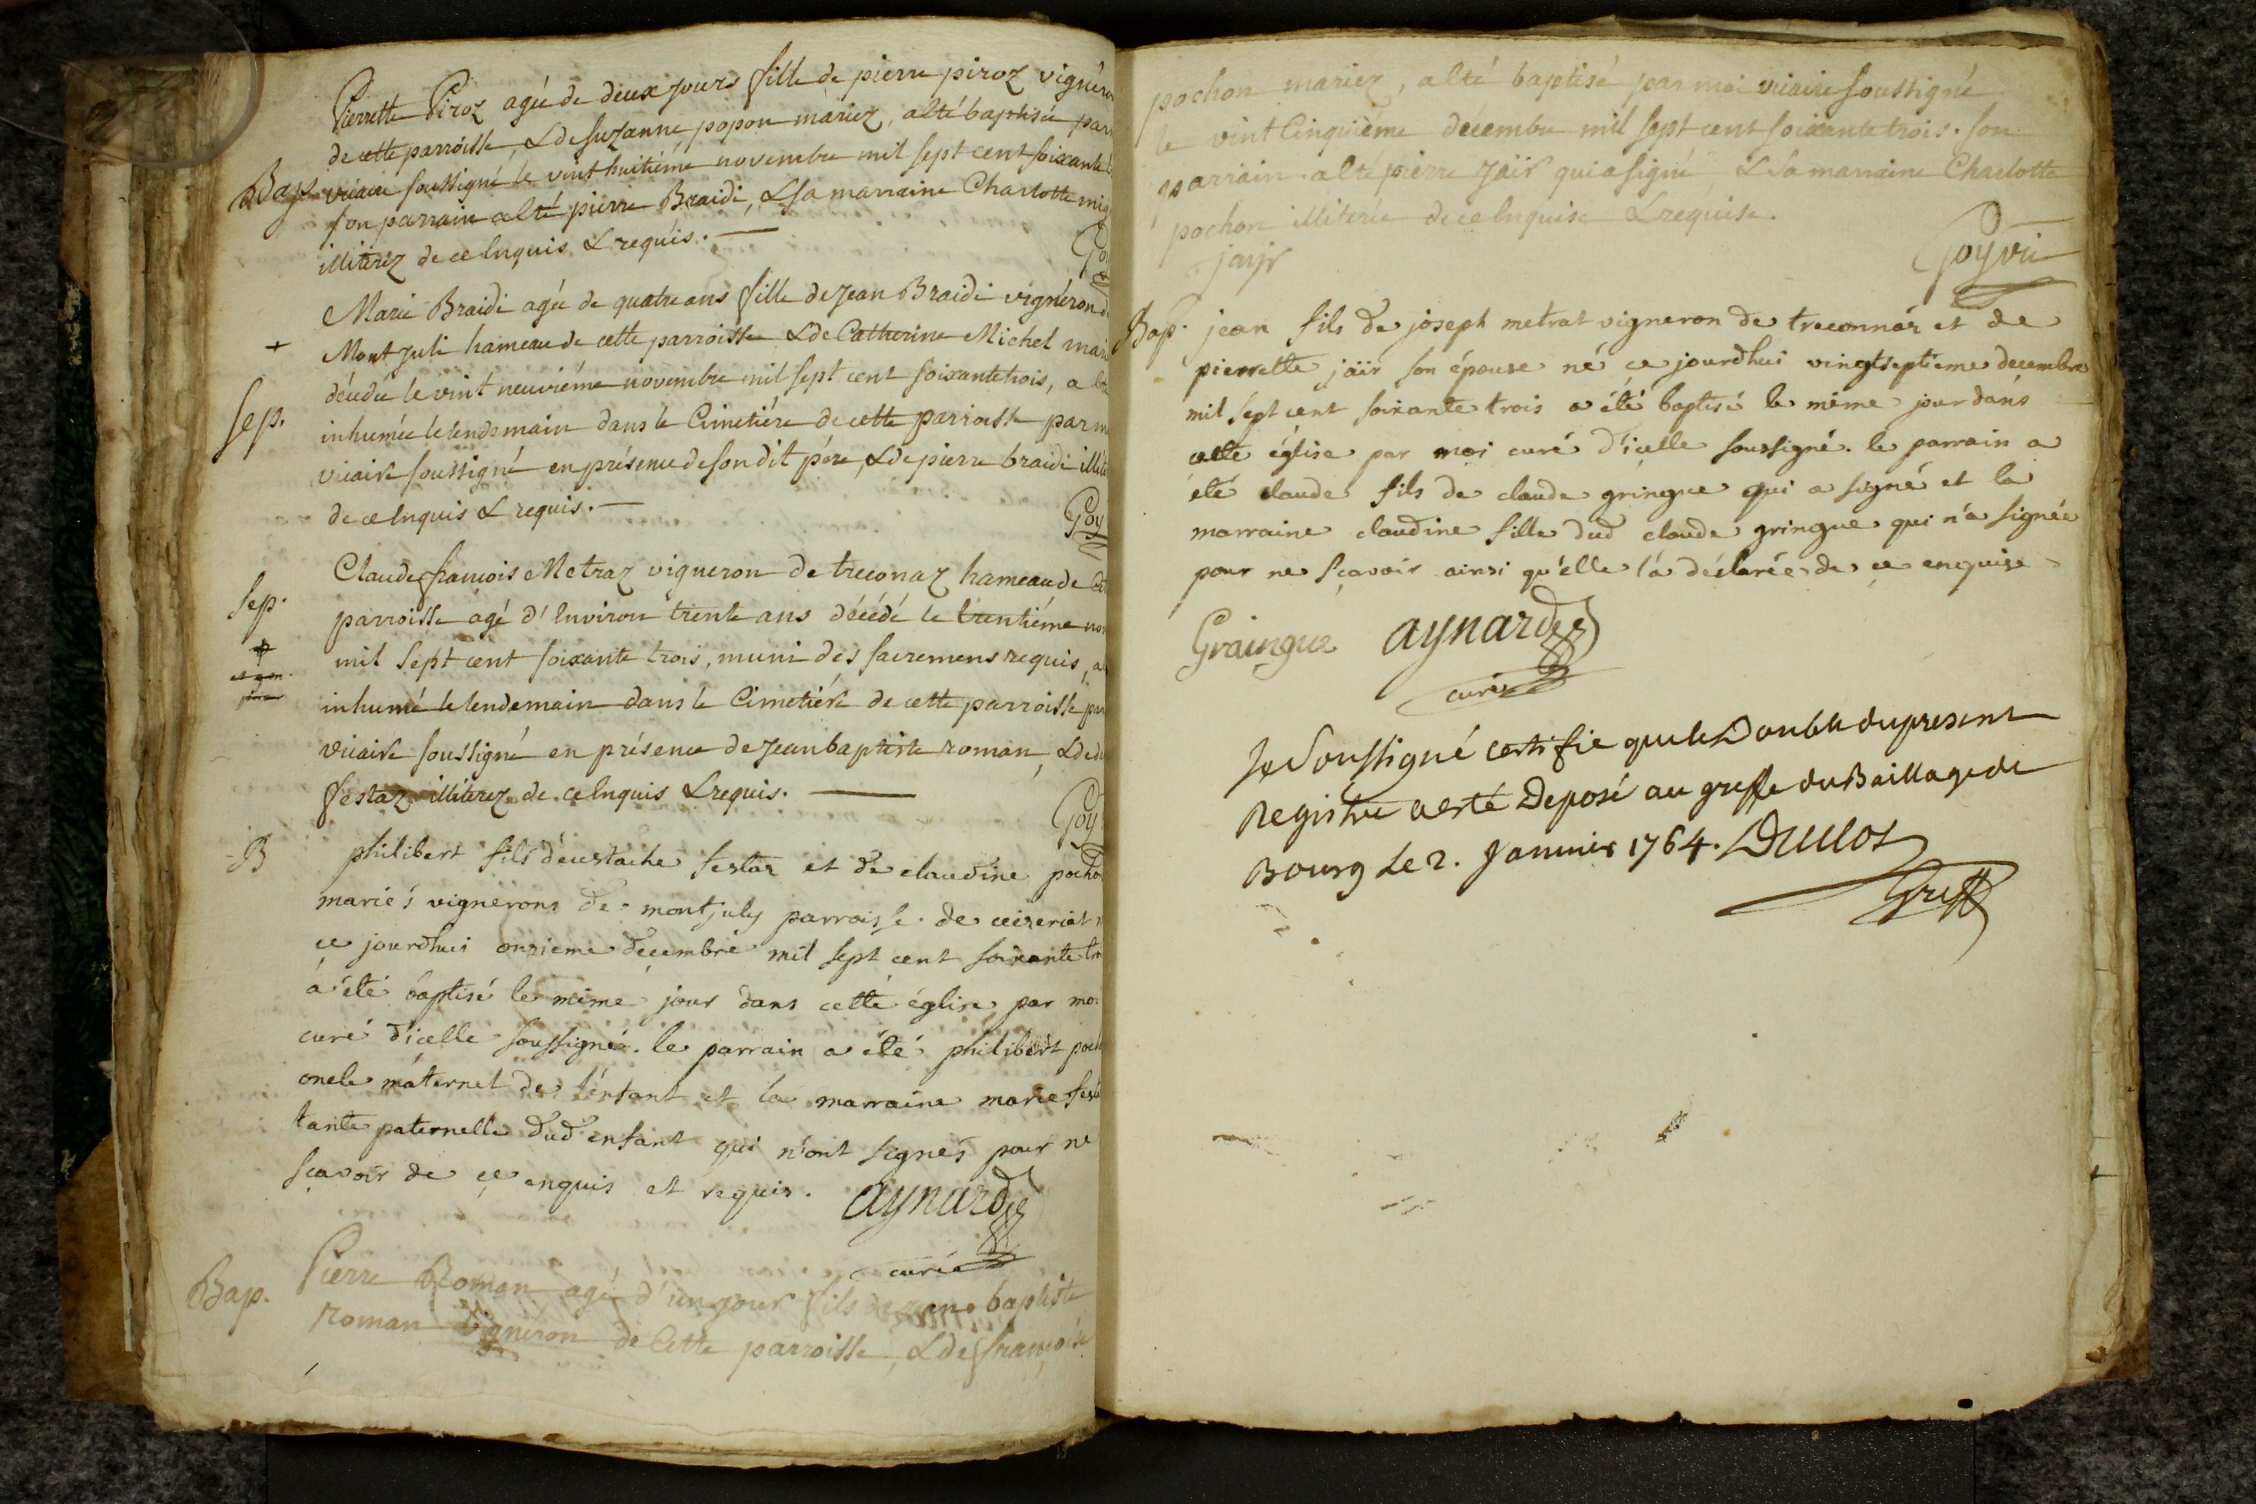 Pierrette Piroz agée de deux jours fille de pierre piroz vignero
de cette parroisse, & de suzanne popon mariez, a été baptisée par
Bap. vicaire soussigné le vint huitiéme novembre mil sept cent soixante
son parrain a été pierre Braidi, & sa marraine Charlotte mig
illiterez de ce Inquis & requis.
Goy
Marie Braidi agée de quatre ans fille de Jean Braidi vignéron d
+ Mont Juli hameau de cette parroisse & de Catherine Michel mari
décédée le vint neuviéme novembre mil sept cent soixante trois, a été
Sep. inhumée le lendemain dans le Cimetiére de cette parroisse par m
vicaire soussigné en présence de son dit pére, & de pierre braidi illite
de ce Inquis & requis.
Goy
Claude françois Metraz vigneron de treconaz hameau de cet
Sep. parroisse agé d'Environ trente ans décédé le trentiéme no
mil sept cent soixante trois, muni des sacremens requis, a
inhumé le lendemain dans le Cimetiére de cette parroisse par
vicaire soussigné en présence de Jean baptiste roman, & de
festaz illiterez de ce Inquis & requis.
Goy
B philibert fils d'eustache festaz et de claudine pocho
mariés vignerons de montjuly parroisse de ceizeriat n
ce jourdhui onzieme decembre mil sept cent soixante tro
a été baptisé le même jour dans cette église par moi
curé d'icelle soussigné. le parrain a été philibert poch
oncle maternel de l'enfant et la marraine marie fest
tante paternelle dud enfant qui n'ont signés pour ne
sçavoir de ce enquis et requis. aynard
curé
Bap. Pierre Roman agé d'un jour fils de jean baptiste
roman vigneron de Cette parroisse, & de françoise
pochon mariez, a été baptisé par moi vicaire soussigné
le vint Cinquiéme decembre mil sept cent soixante trois. son
parrain a été pierre jaïr qui a signé & sa marraine Charlotte
pochon illiterée de ce Inquise & requise.
jayr Goy vic
Bap. jean fils de joseph metrat vigneron de treconnaz et de
pierrette jaïr son épouse né ce jourdhui vingtseptieme decembre
mil sept cent soixante trois a été baptisé le même jour dans
cette église par moi curé d'icelle soussigné. le parrain a
été claude fils de claude gringue qui a signé et la
marraine claudine fille dud claude gringue qui n'a signée
pour ne sçavoir ainsi qu'elle l'a déclarée de ce enquise
Graingue aynard
curé
Je Soussigné certifie que le Double du present
Registre a esté Deposé au greffe du Bailliage de
Bourg Le 2. Janvier 1764. Duclos
Greff